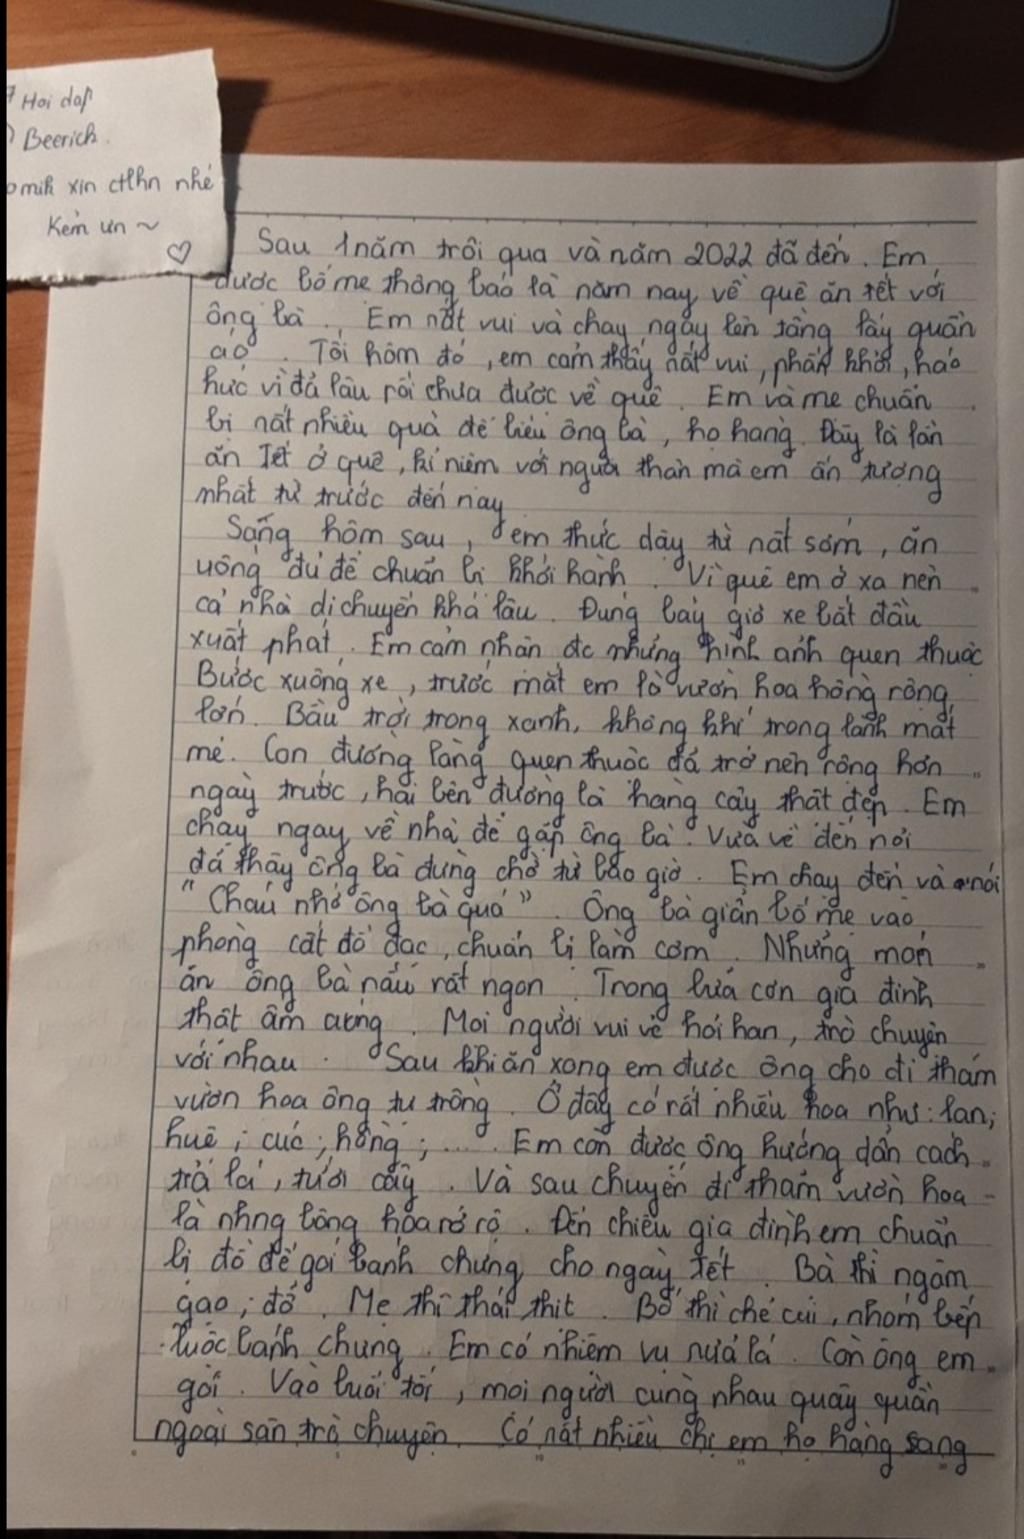 Hoi dap
Beerich.
mih xin ctlhn nhé
Kẻm ưn ~
Sau 1 năm trôi qua và năm 2022 đã đến. Em
được bố mẹ thông báo là năm nay về quê ăn tết với
ông bà. Em nất vui và chạy ngay lên tầng lấy quần
áo. Tối hôm đó, em cảm thấy nất vui, phấn khởi, háo
hức vì đã lâu rồi chưa được về quê. Em và mẹ chuẩn
bị nất nhiều quà để biếu ông bà, họ hàng. Đây là lần
ăn Tết ở quê, kỉ niệm với người thân mà em ấn tượng
nhất từ trước đến nay
Sáng hôm sau, em thức dậy từ nất sớm, ăn
uống đủ để chuẩn bị khởi hành. Vì quê em ở xa nên
cả nhà di chuyển khá lâu. Đúng bảy giờ xe bắt đầu
xuất phát. Em cảm nhận đc những hình ảnh quen thuộc
Bước xuống xe, trước mắt em là vườn hoa hồng rộng
lớn. Bầu trời trong xanh, không khí trong lành mát
mẻ. Con đường làng quen thuộc đã trở nên rộng hơn
ngày trước, hai bên đường là hàng cây thật đẹp. Em
chạy ngay về nhà để gặp ông bà. Vừa về đến nơi
đã thấy ông bà đứng chờ từ bao giờ. Em chạy đến và nói
"Cháu nhớ ông bà quá". Ông bà giản bố mẹ vào
phòng cất đồ đạc, chuẩn bị làm cơm. Những món
ăn ông bà nấu rất ngon. Trong bữa cơn gia đình
thật ấm cúng. Mọi người vui vẻ hỏi han, trò chuyện
với nhau. Sau khi ăn xong em được ông cho đi thăm
vườn hoa ông tự trồng. Ở đây có rất nhiều hoa như: lan;
huệ; cúc; hồng; ..... Em còn được ông hướng dẫn cách
trả lá, tưới cây. Và sau chuyến đi thăm vườn hoa
là nhng bông hoa rớ rộ. Đến chiều gia đình em chuẩn
bị đồ để gói bánh chưng cho ngày Tết. Bà thì ngâm
gạo; đỗ. Mẹ thì thái thịt. Bố thì chẻ củi, nhóm bếp
luộc bánh chưng. Em có nhiệm vụ nửa lá. Còn ông em
gói. Vào buổi tối, mọi người cùng nhau quây quần
ngoài sân trò chuyện. Có nất nhiều chị em họ hàng sang